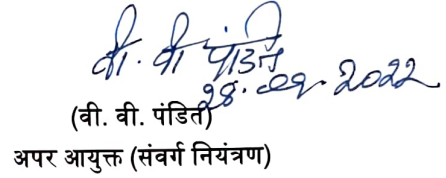 वी. वी पंडित
28.09.2022
(वी. वी. पंडित)
अपर आयुक्त (संवर्ग नियंत्रण)